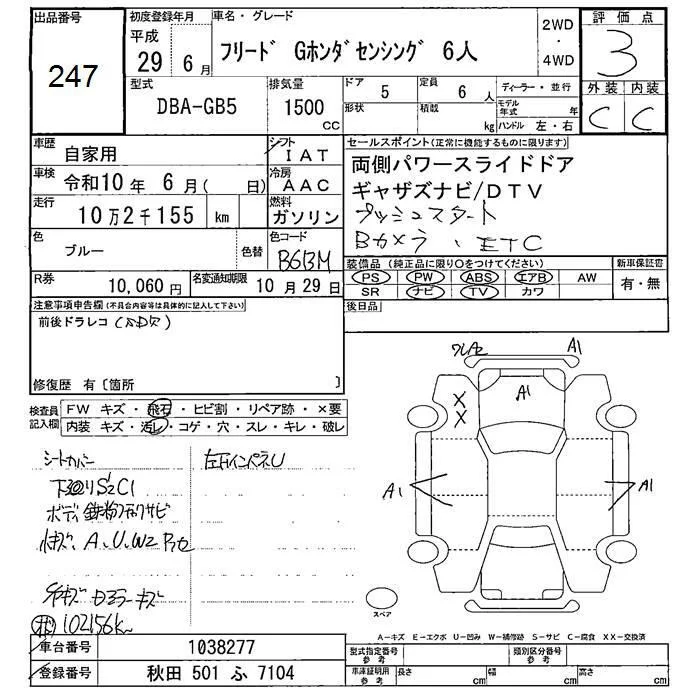 出品番号
247
初度登録年月
平成
29 6月
車名・グレード
フリード Gホンダセンシング 6人
2WD
・
4WD
評価点
3
外装 内装
C C
型式
DBA-GB5
排気量
1500
CC
ドア
5
形状
定員
6 人
積載
kg
ディーラー・並行
モデル年式 年
ハンドル 左・右
車歴
自家用
シフト
IAT
車検
令和10年 6月( 日)
冷房
AAC
走行
10万2千155 km
燃料
ガソリン
色
ブルー
色替
色コード
B613M
R券
10,060円
名変通知期限
10月29日
セールスポイント(正常に機能するものに限ります)
両側パワースライドドア
ギャザズナビ/DTV
プッシュスタート
Bカメラ、ETC
装備品(純正品に限り○をつけてください)
PS PW ABS エアB AW
SR ナビ TV カワ
新車保証書
有・無
後日品
注意事項申告欄(不具合内容等は具体的に記入して下さい)
前後ドラレコ
修復歴 有〔箇所 〕
検査員
記入欄
FW キズ・飛石・ヒビ割・リペア跡・×要
内装 キズ・汚レ・コゲ・穴・スレ・キレ・破レ
シートカバー
左FインパネU
下廻りS2C1
ボディ鉄粉
小キズ、A、U、W2
ドアミラーキズ
102156k
A1
A1
X
X
A1
A1
スペア
A-キズ E-エクボ U-凹み W-補修跡 S-サビ C-腐食 XX-交換済
車台番号
1038277
登録番号
秋田 501 ふ 7104
型式指定番号
参考
類別区分番号
参考
車庫証明用
参考
長さ cm
幅 cm
高さ cm